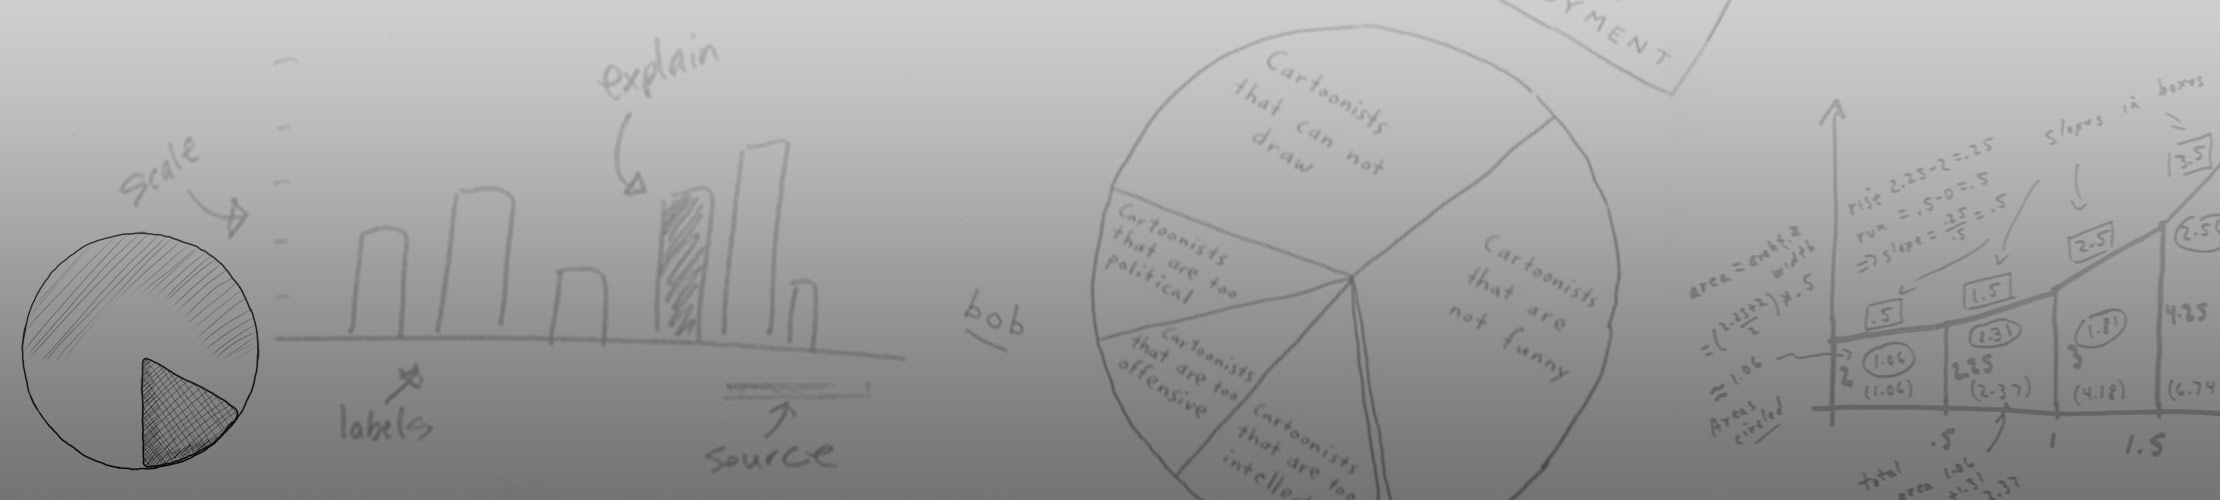 scale
explain
labels
source
bob
YMENT
Cartoonists
that can not
draw
Cartoonists
that are too
political
Cartoonists
that are too
offensive
Cartoonists
that are too
Cartoonists
that are
not funny
slopes in boxes
rise 2.25-2=.25
run = .5-0=.5
=> slope = .25/.5 = .5
width
≈ 1.06
Areas
circled
.5
1.5
2.5
3.5
1.06
1.31
1.81
2.5
2
2.25
3
4.25
(1.06)
(2.37)
(4.18)
(6.74
.5
1
1.5
total
area 1.06
+1.31
2.37